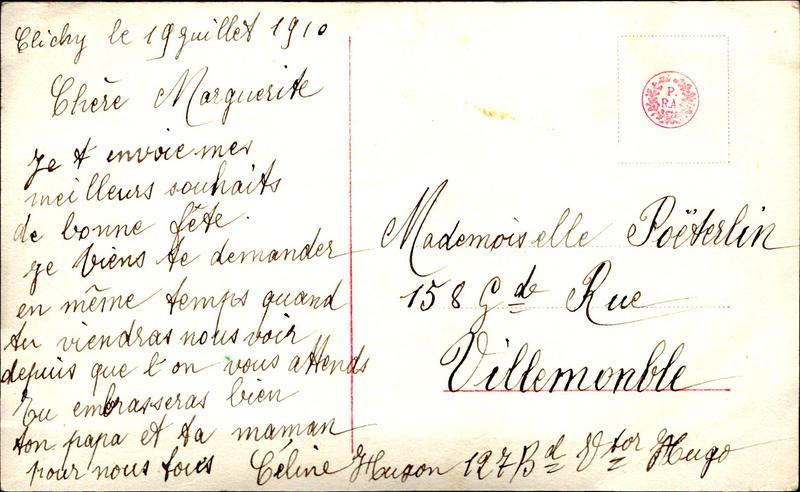 Clichy le 19 juillet 1910
Chère Marguerite
Je t envoie mes
meilleurs souhaits
de bonne fête.
Je viens te demander
en même temps quand
tu viendras nous voir
depuis que l'on vous attends
Tu embrasseras bien
ton papa et ta maman
pour nous tous
Céline Hugon 127 Bd Vtor Hugo
P.
R.A.
Mademoiselle Poëterlin
158 Gde Rue
Villemonble